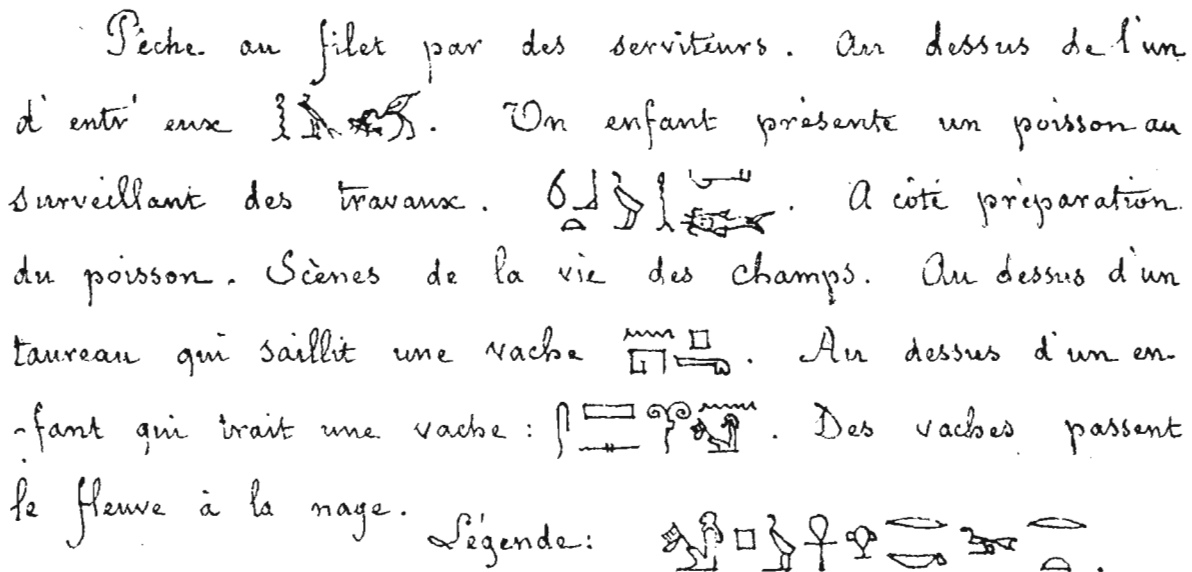 Pêche au filet par des serviteurs. Au dessus de l'un
d'entr'eux . Un enfant présente un poisson au
surveillant des travaux. . A côté préparation
du poisson. Scènes de la vie des champs. Au dessus d'un
taureau qui saillit une vache . Au dessus d'un en-
-fant qui trait une vache : . Des vaches passent
le fleuve à la nage. Légende: .